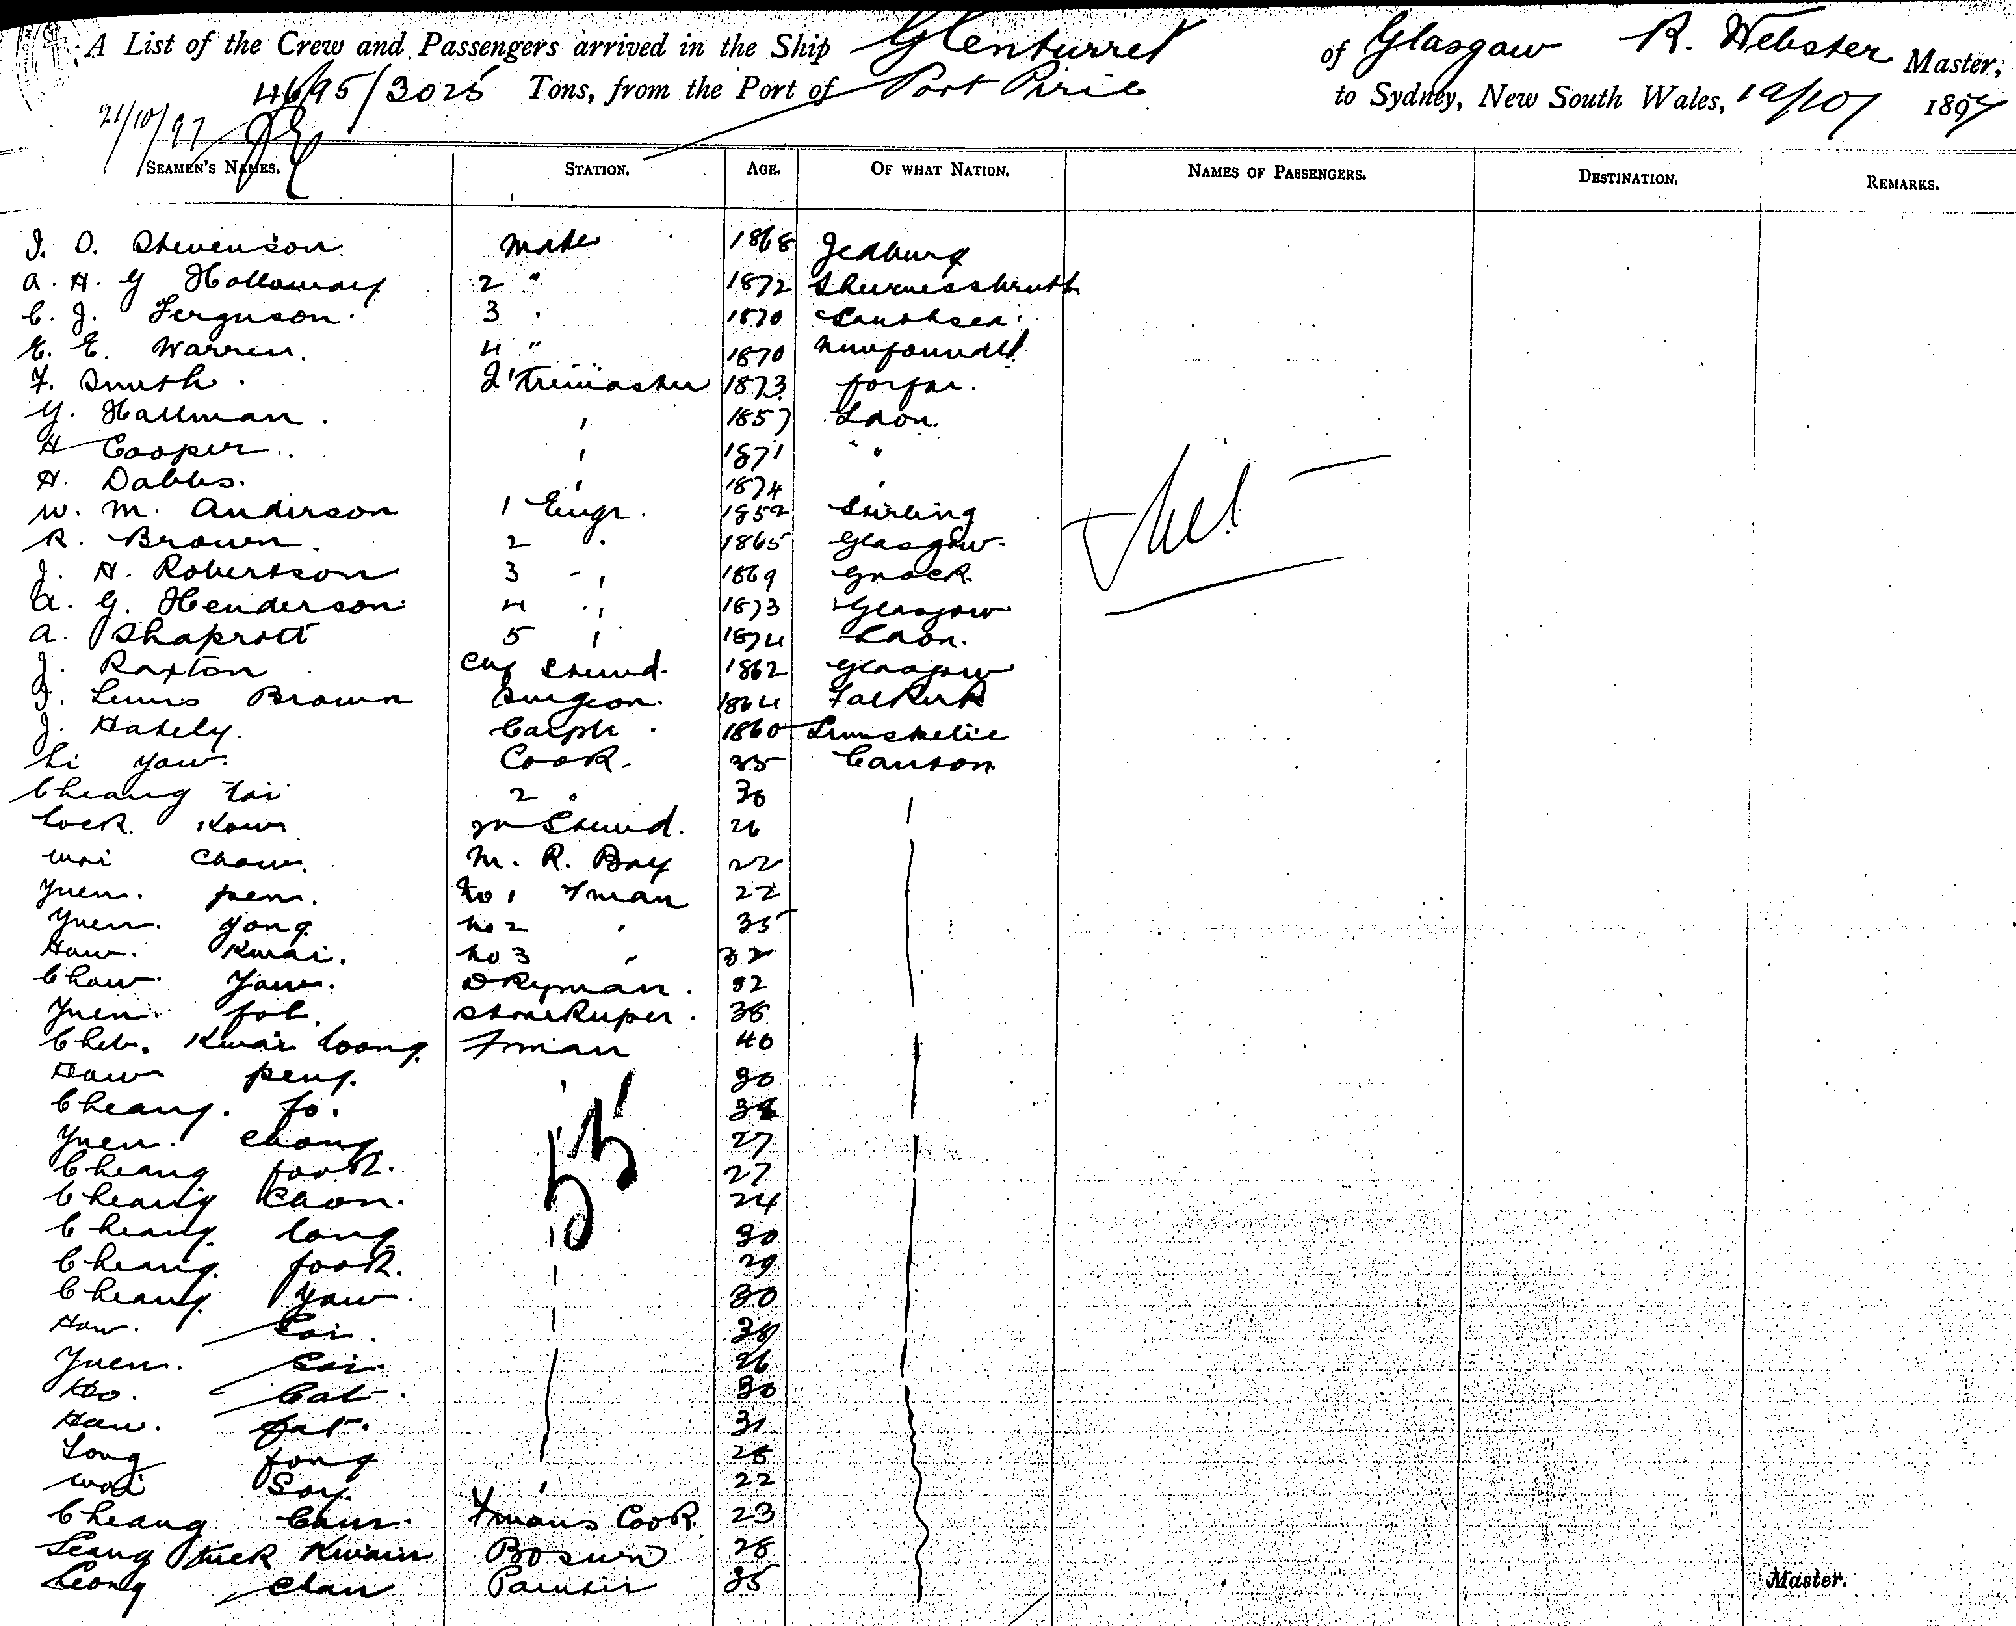 A List of the Crew and Passengers arrived in the Ship Glenturret of Glasgow R. Webster Master,
4695/3025 Tons, from the Port of Port Pirie to Sydney, New South Wales, 19/10/ 1897
21/10/97
SEAMEN'S NAMES. STATION. AGE. OF WHAT NATION. NAMES OF PASSENGERS. DESTINATION. REMARKS.
J. O. Stevenson Mate 1868 Jedburg
A. H. G Holloway 2 " 1872
C. J. Ferguson. 3 " 1870 Southsea
E. E. Warren. 4 " 1870 Newfoundld
F. Smith. 1873 Forfar.
G. Hallman. " 1857 Ldon.
H Cooper. " 1871 "
H. Dabbs. " 1874 "
W. M. Anderson 1 Engr. 1852 Stirling
R. Brown. 2 " 1865 Glasgow.
J. H. Robertson 3 " 1869 Gnock
A. G. Henderson 4 " 1873 Glasgow
A. Shaprott 5 " 1874 Ldon.
J. Raxton Chf Stewd. 1862 Glasgow
J. Lewis Brown Surgeon. 1864 Falkirk
J. Hately. Carptr. 1860
Li Yaw. Cook. 35 Canton
Cheang Kai 2 " 36
Lock Kow Stewd. 26
Wai Chow. M. R. Boy 22
Yuen. pen. No 1 Fman 22
Yuen. Yong No 2 " 35
Haw. Kwai. No 3 " 32
Chaw Yaw. Dkyman. 32
Yuen fol. Storekeeper. 38
Cheb. Kwai Loong. Fman 40
Haw peng. " 30
Cheang. fo. 38
Yuen. Chong 27
Cheang fook. 27
Cheang Choon. 24
55
Cheang. Long 30
Cheang. fook. 29
Cheang. Yaw. 30
How. Soi. 38
Yuen. Soi 26
Ho. Cat. 30
Haw. fat. 31
Tong fong 28
Wai Soy. " 22
Cheang Chur. Fmans Cook 23
Leang Tuck Kwain Bosun 28
Leong Chan Painter 35
Nil
Master.